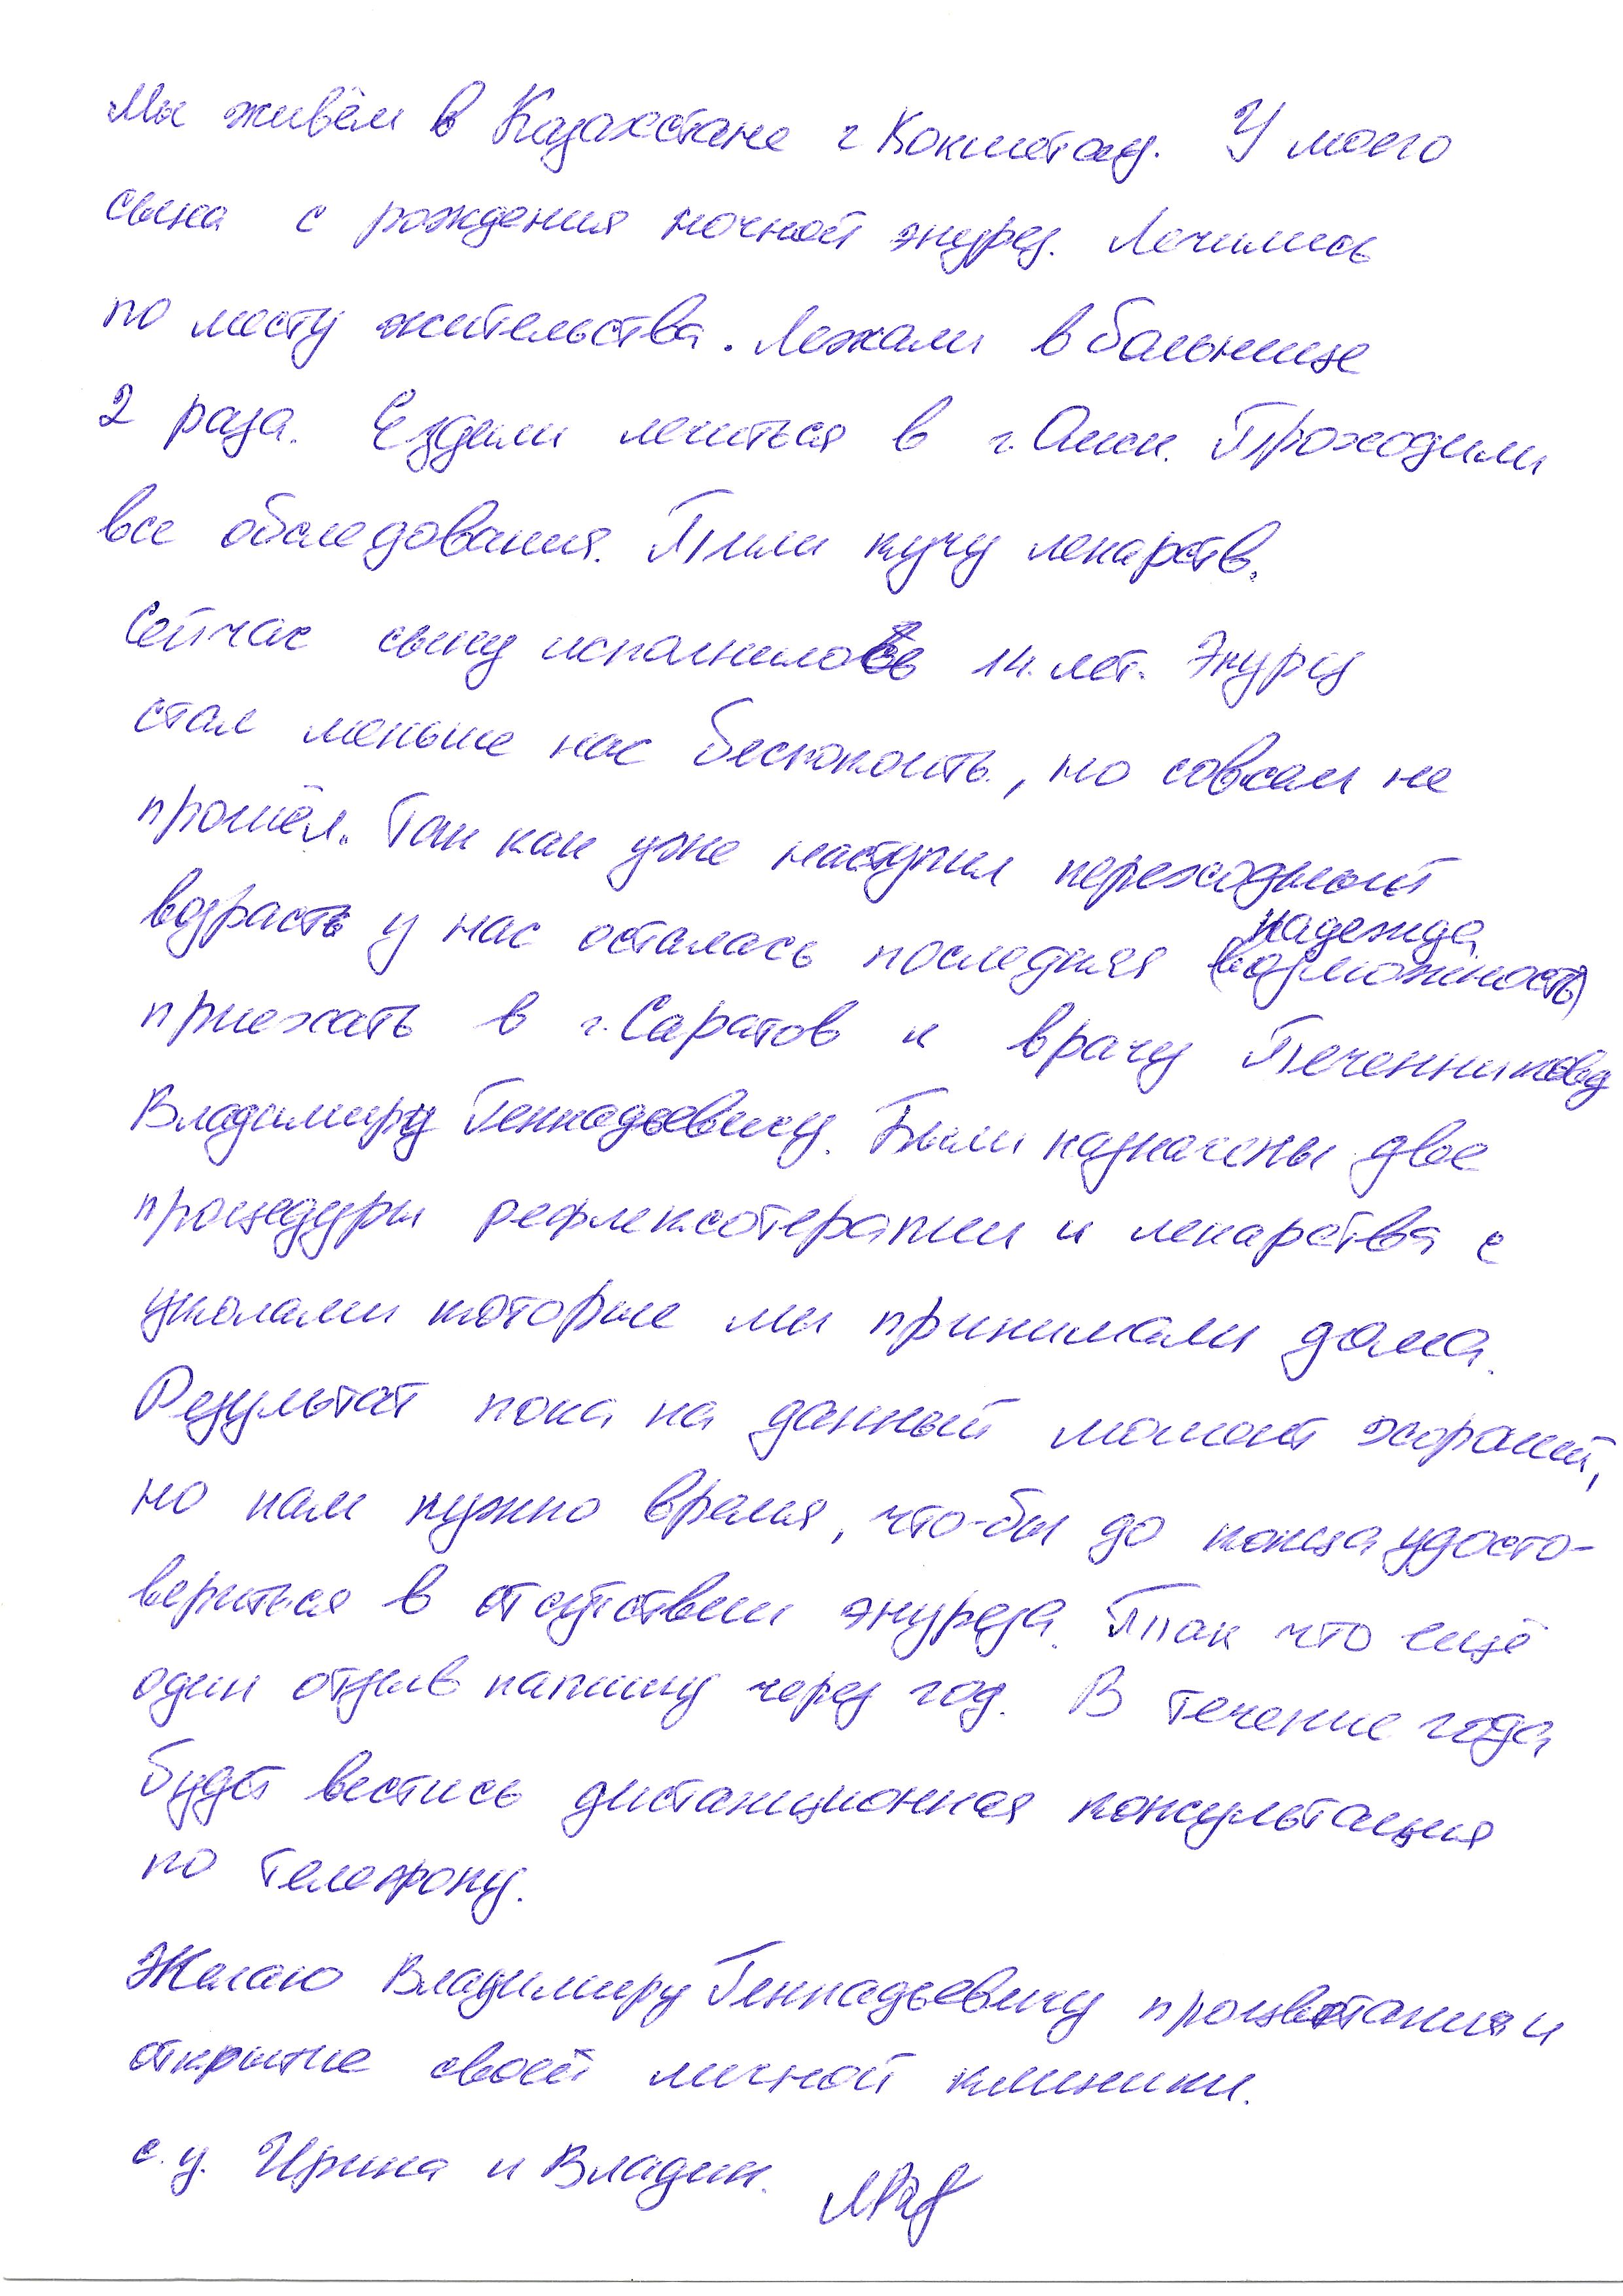 Мы живём в Казахстане г Кокшетау. У моего
сына с рождения ночной энурез. Лечились
по месту жительства. Лежали в больнице
2 раза. Ездили лечиться в г. Омск. Проходили
все обследования. Пили кучу лекарств.
Сейчас сыну исполнилось 14 лет. Энурез
стал меньше нас беспокоить, но совсем не
прошёл. Так как уже наступил переходный
надежда
возраст у нас осталась последняя (возможность)
приехать в г. Саратов к врачу Печенникову
Владимиру Геннадьевичу. Были назначены две
процедуры рефлексотерапии и лекарства с
уколами которые мы принимали дома.
Результат пока на данный момент хороший,
но нам нужно время, что-бы до конца удосто-
вериться в отсутствии энуреза. Так что ещё
один отзыв напишу через год. В течение года
будет вестись дистанционная консультация
по телефону.
Желаю Владимиру Геннадьевичу процветания и
открытие своей личной клиники.
с.у. Ирина и Владик.